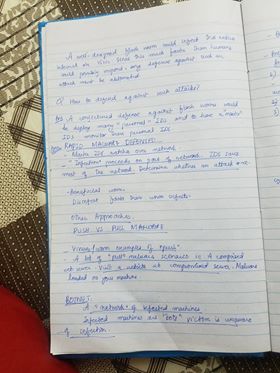 A well-designed flash worm could infect the entire
internet in 15 sec. Since this much faster than humans
could possibly respond, any defense against such an
attack must be automated.
Q How to defend against such attacks?
Ans A conjectured defense against flash worms would
be deploy many "personal" IDS and to have a master
IDS monitor these personal IDS
RAPID MALWARE DEFENSE:
- Master IDS watches over network.
- "Infection" proceeds on part of network. IDS saves
most of the network. Determine whether an attack one
- Beneficial worm
Disinfect faster than worm infects.
Other Approaches.
PUSH VS PULL MALWARE
- Viruses/worm examples of "push"
- A lot of "pull" malware scenarios is A compromised
web server. Visit a website at compromised server. Malware
loaded on your machine
BOTNET:
A "network" of infected machines
Infected machines are "bots" victim is unaware
of infection.